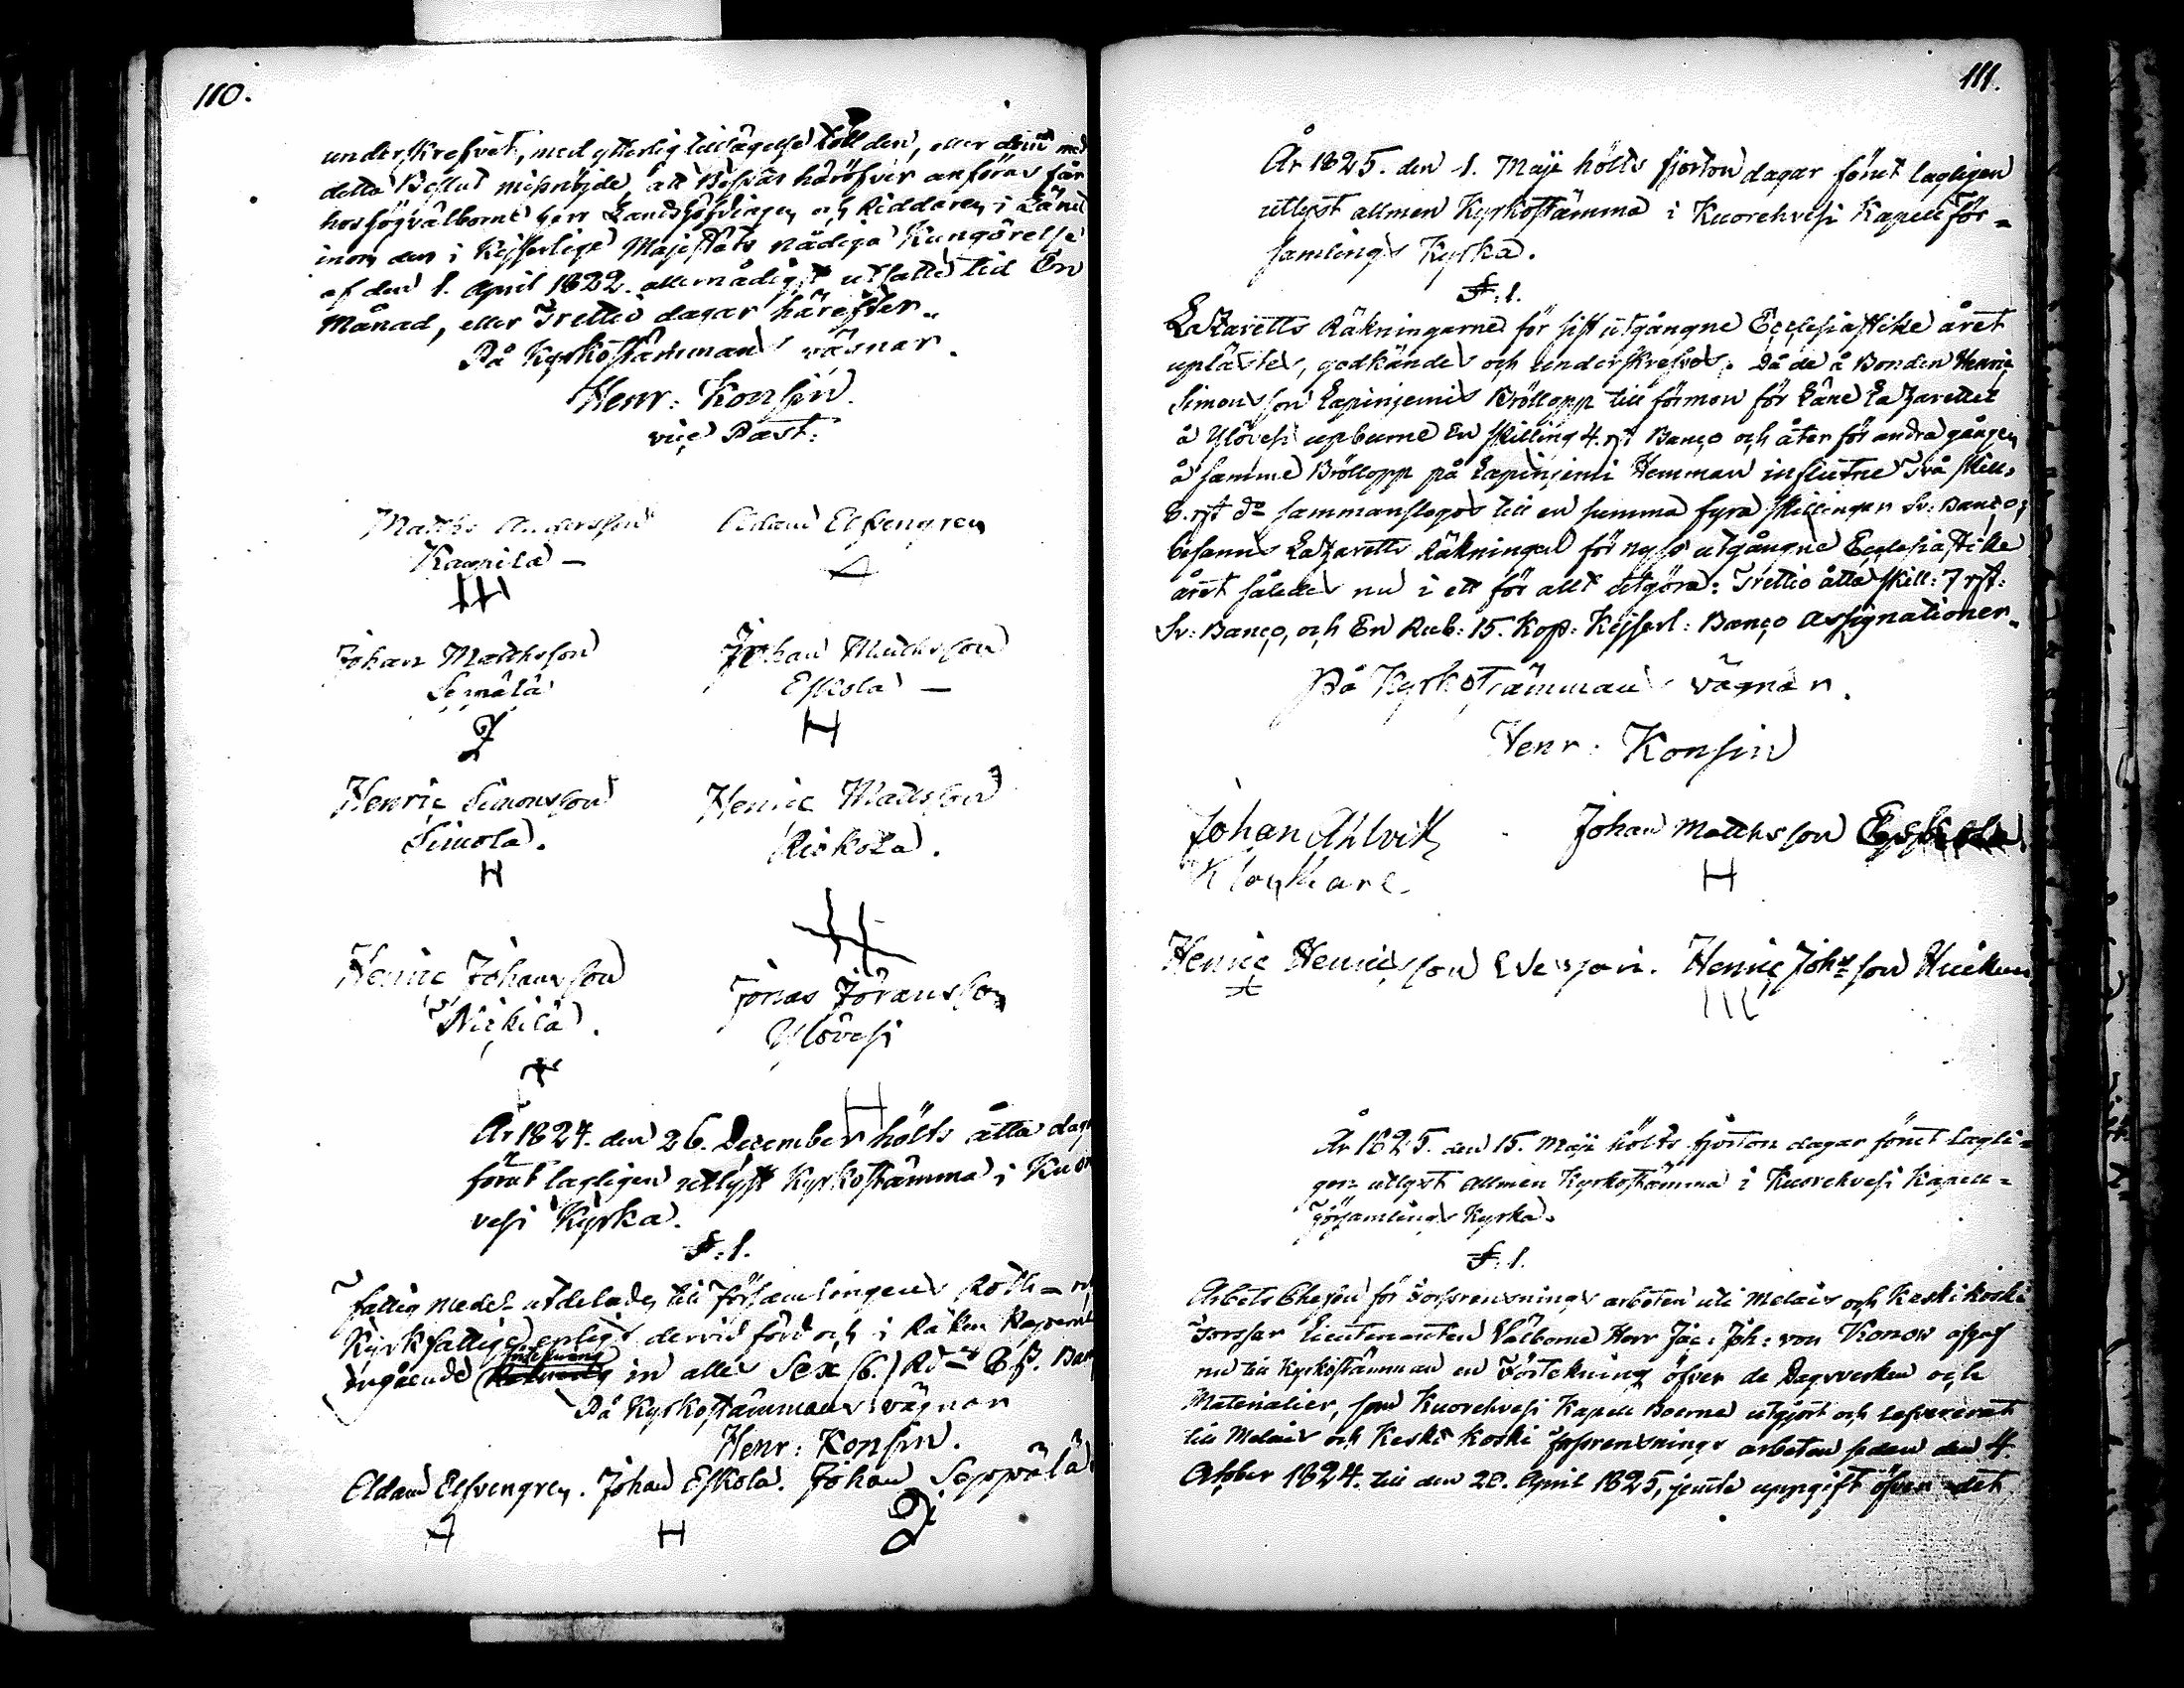 110.
underskrefvit, med ytterlig tillägelse till den, eller dem med
detta Beslut missnöjde, att Besvär häröfver anföras får
hos Högvälborne Herr Landshöfdingen och Riddaren i Länet
inom den i Kejserlige Majestäts nådiga Kungörelse
af den 1. April 1822. allernådigst utsatte tid En
Månad, eller Trettio dagar härefter.
På Kyrkostämmans vägnar.
Henr: Konsin.
vice Past:
Matths Andersson Adam Elfvengren
Kaupila —
Johan Mattsson Johan Mattsson
Seppälä Eskola —
Henric Simonsson Henric Mattsson
Simola. Riskola.
H
Henric Johansson Jonas Jöransson
Nickilä. Ylövesi
År 1824. den 26. December hölts åtta dagar
förut lagligen utlyst Kyrkostämma i Kuore
vesi Kyrka.
§. 1.
Fattig medel utdelades till Församlingens Roth- och
Kyrkfattige enligt dervid förd och i Räken
ingående Förtekning in alles Sex (6.) Rd 8 ß. Banco
På Kyrkostämmans vägnar
Henr: Konsin.
Adam Elfvengren. Johan Eskola. Johan Seppälä
H
111.
År 1825. den 1. Maji hölts fjorton dagar förut lagligen
utlyst allmen Kyrkostämma i Kuorehvesi Kapell För-
samlings Kyrka.
§. 1.
Lazaretts Räkningarne för sist utgångne Ecclesiastike året
uplästes, godkändes och underskrefvos. Då de å Bonden Henric
Simonsson Lapinjemis Bröllopp till förmon för Läns Lazarettet
å Ylövesi upburne En skilling 4. rst Banco och åter för andra gången
å samme Bröllopp på Lapinjemi Hemman influtne Två skill.
8. rst do sammanslogos till en summa fyra skillingar Sv: Banco;
befanns Lazaretts Räkningen för nyss utgångne Ecclesiastike
året således nu i ett för allt utgöra: Trettio åtta skill: 7 rst:
Sv: Banco, och En Rub: 15. Kop: Kejserl: Banco Assignationer.
På Kyrkostämmans vägnar.
Henr: Konsin
Johan Ahlvik Johan Mattsson Eskola
Klockare. H
Henric Henricsson Johsson
År 1825. den 15. Maji hölts fjorton dagar förut lagli-
gen utlyst Allmen Kyrkostämma i Kuorehvesi Kapell-
Församlings Kyrka.
§. 1.
Arbets Chefen för Forsrensnings arbeten uti Melais och Keskikoski
Forssar Lieutenanten Välborne Herr Jac: Joh: von Konow afgaf
nu till Kyrkostämman en Förtekning öfver de Dagsverken och
Materialier, som Kuorehvesi Kapell Boerne utgjort och lefvererat
till Melais och Keski koski forsrensnings arbeten sedan den 4.
October 1824. till den 28. April 1825, jemte uppgift öfver det